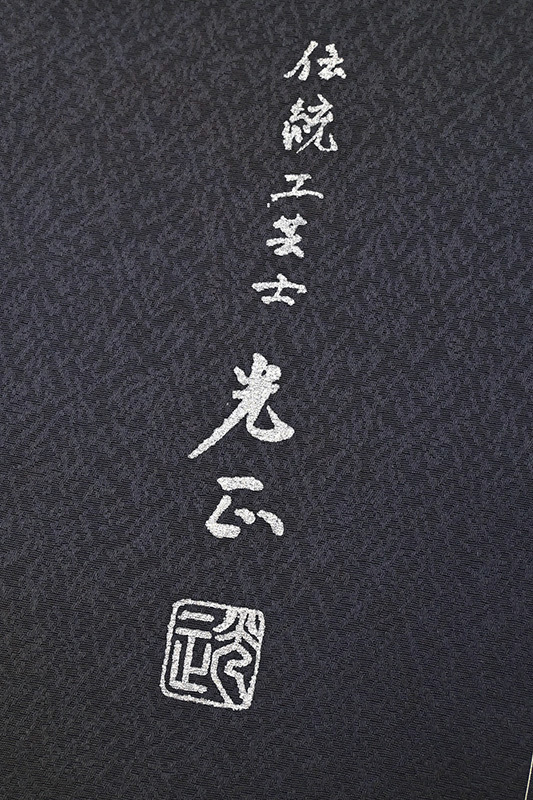 伝統工芸士
光正